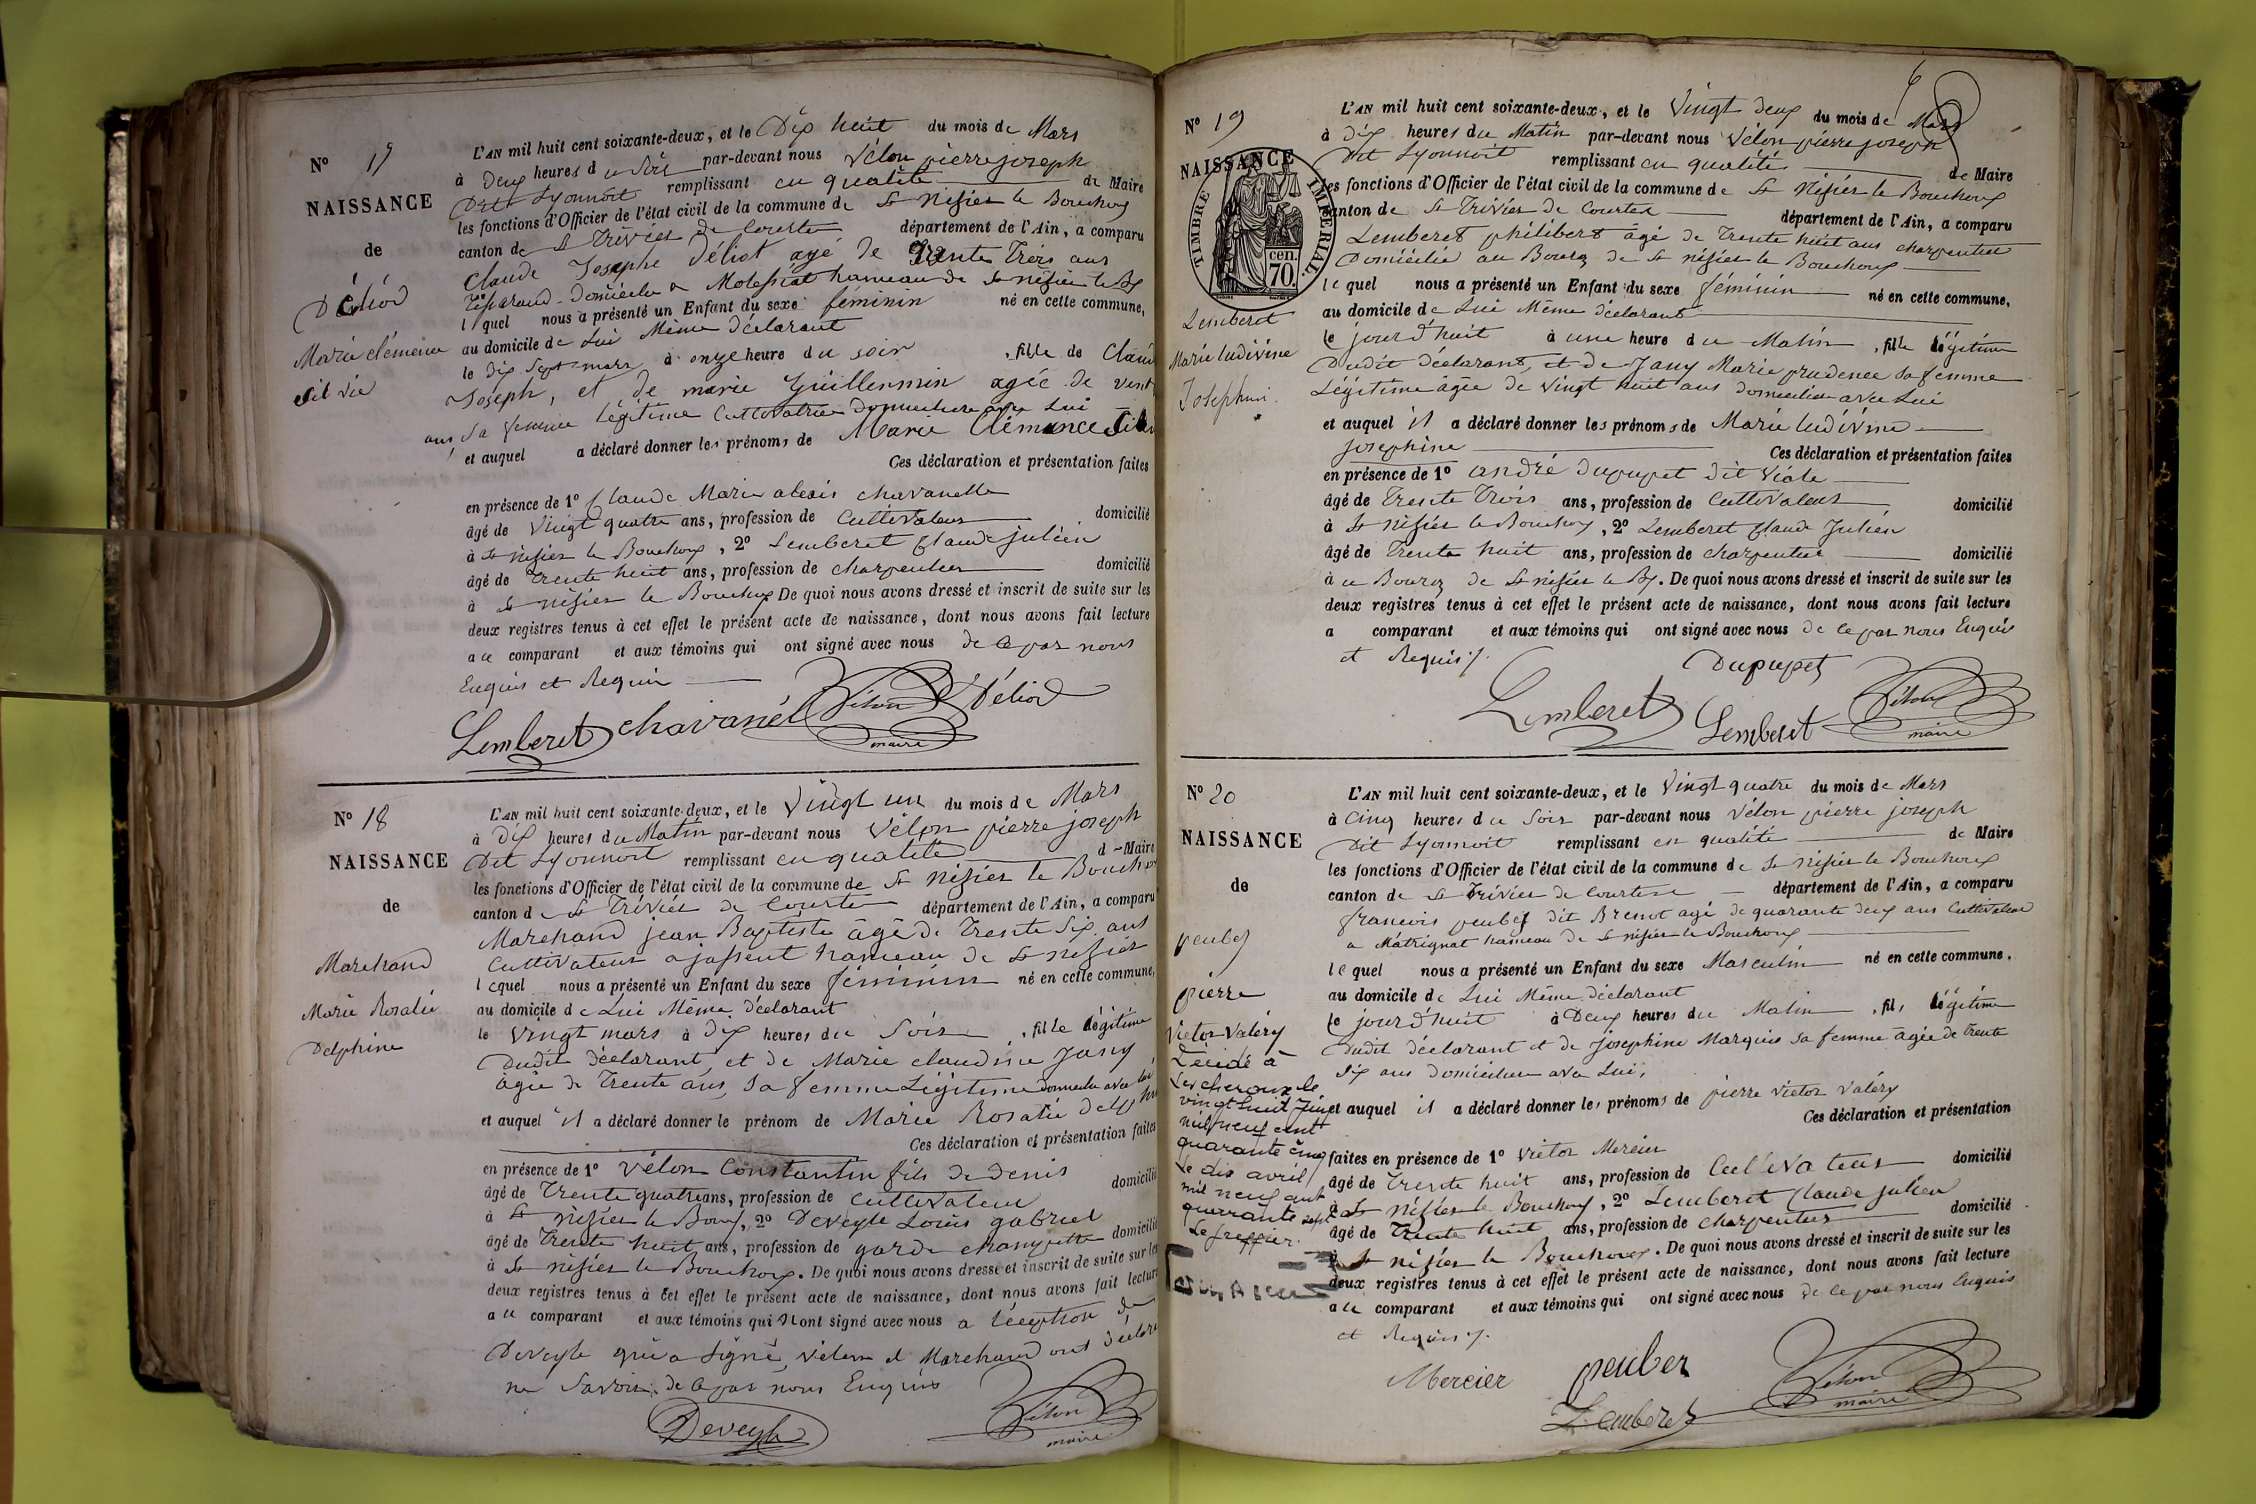 N° 17
NAISSANCE
de
Déliod
Marie clémence
Silvie
L'AN mil huit cent soixante-deux, et le Dix huit du mois de Mars
à Deux heures du Soir par-devant nous Vélon pierre joseph
Dit Lyonnoit remplissant en qualité de Maire
les fonctions d'Officier de l'état civil de la commune de St Nisier le Bouchoux
canton de St Trivier de Courtes département de l'Ain, a comparu
Claude Josephe Déliot agé de Trente Trois ans
domicilié a Molessiat hameau de St nisier le Bx
lequel nous a présenté un Enfant du sexe féminin né en cette commune,
au domicile de Lui Même déclarant
le dix Sept mars à onze heure du soir , fille de Claude
Joseph, et de marie Guillermin agée de vent
ans Sa femme légitime Cultivatrice Domiciliée avec Lui
et auquel a déclaré donner les prénoms de Marie Clémence Sil
Ces déclaration et présentation faites
en présence de 1° Claude Marie alexis chavanelle
âgé de Vingt quatre ans, profession de Cultivateur domicilié
à St nisier le Bouchoux, 2° Lemberet Claude julien
âgé de Trente huit ans, profession de charpentier domicilié
à St nisier le Bouchoux De quoi nous avons dressé et inscrit de suite sur les
deux registres tenus à cet effet le présent acte de naissance, dont nous avons fait lecture
au comparant et aux témoins qui ont signé avec nous de ce par nous
Enquis et Requis
Lemberet chavanel Vélon maire Déliod
N° 18
NAISSANCE
de
Marchand
Marie Rosalie
Delphine
L'AN mil huit cent soixante-deux, et le Vingt un du mois de Mars
à Dix heures du Matin par-devant nous Vélon pierre joseph
Dit Lyonnoit remplissant en qualité de Maire
les fonctions d'Officier de l'état civil de la commune de St Nisier le Bouchoux
canton de St Trivier de Courtes département de l'Ain, a comparu
Marchand jean Baptiste âgé de Trente Six ans
Cultivateur a jassent hameau de St nisier
lequel nous a présenté un Enfant du sexe féminin né en cette commune,
au domicile de Lui Même déclarant
le Vingt mars à Dix heures du Soir , fille légitime
Dudit déclarant, et de Marie claudine Jany
âgée de Trente ans, Sa femme Légitime Domiciliée avec lui
et auquel il a déclaré donner le prénom de Marie Rosalie Delphine
Ces déclaration et présentation faites
en présence de 1° Vélon Constantin fils de denis
âgé de Trente quatre ans, profession de Cultivateur domicilié
à St nisier le Boux, 2° Deveyle Louis gabriel
âgé de Trente huit ans, profession de garde champette domicilié
à St nisier le Bouchoux. De quoi nous avons dressé et inscrit de suite sur les
deux registres tenus à cet effet le présent acte de naissance, dont nous avons fait lecture
au comparant et aux témoins qui n'ont signé avec nous a l'éception de
Deveyle qui a Signé, Vélon et Marchand ont déclaré
ne Savoir, de ce par nous Enquis
Deveyle Vélon maire
6
N° 19
NAISSANCE
TIMBRE IMPÉRIAL
cen. 70.
Lemberet
Marie ludivine
Josephine.
L'AN mil huit cent soixante-deux, et le Vingt deux du mois de Mars
à Dix heures du Matin par-devant nous Vélon pierre joseph
Dit Lyonnoit remplissant en qualité de Maire
les fonctions d'Officier de l'état civil de la commune de St Nisier le Bouchoux
canton de St Trivier de Courtes département de l'Ain, a comparu
Lemberet philibert âgé de Trente huit ans charpentier
Domicilié au Bourg de St nisier le Bouchoux
lequel nous a présenté un Enfant du sexe féminin né en cette commune,
au domicile de Lui Même déclarant
le jourd'huit à une heure du Matin , fille légitime
Dudit déclarant, et de Jany Marie prudence Sa femme
Légitime âgée de Vingt huit ans domiciliée avec Lui
et auquel il a déclaré donner les prénoms de Marie ludivine
josephine Ces déclaration et présentation faites
en présence de 1° andré Dupupet dit Viole
âgé de Trente Trois ans, profession de Cultivateur domicilié
à St Nisier le Bouchoux, 2° Lemberet Claude Julien
âgé de Trente huit ans, profession de charpentier domicilié
à u Bourg de St nisier le Bx. De quoi nous avons dressé et inscrit de suite sur les
deux registres tenus à cet effet le présent acte de naissance, dont nous avons fait lecture
a comparant et aux témoins qui ont signé avec nous de ce par nous Enquis
et Requis
Lemberet Dupupet Lemberet Vélon maire
N° 20
NAISSANCE
de
peuber
pierre
Victor Valéry
Décédé à
Lescheroux le
vingt huit Juin
mil neuf cent
quarante cinq
Le dix avril
mil neuf cent
quarante sept
Le greffier.
L'AN mil huit cent soixante-deux, et le Vingt quatre du mois de Mars
à Cinq heures du Soir par-devant nous Vélon pierre joseph
Dit Lyonnoit remplissant en qualité de Maire
les fonctions d'Officier de l'état civil de la commune de St Nisier le Bouchoux
canton de St Trivier de Courtes département de l'Ain, a comparu
francois peuber dit Brenot agé de quarante deux ans Cultivateur
a Matrignat hameau de St nisier le Bouchoux
lequel nous a présenté un Enfant du sexe Masculin né en cette commune,
au domicile de Lui Même déclarant
le jourd'huit à Deux heures du Matin , fils légitime
Dudit déclarant et de josephine Marquis Sa femme agée de trente
Six ans domiciliée avec Lui,
et auquel il a déclaré donner les prénoms de pierre Victor Valéry
Ces déclaration et présentation
faites en présence de 1° Victor Mercier
âgé de Trente huit ans, profession de Cultivateur domicilié
à St Nisier le Bouchoux, 2° Lemberet Claude julien
âgé de Trente huit ans, profession de charpentier domicilié
à St nisier le Bouchoux. De quoi nous avons dressé et inscrit de suite sur les
deux registres tenus à cet effet le présent acte de naissance, dont nous avons fait lecture
au comparant et aux témoins qui ont signé avec nous de ce par nous Enquis
et Requis
Mercier peuber Lemberet Vélon maire